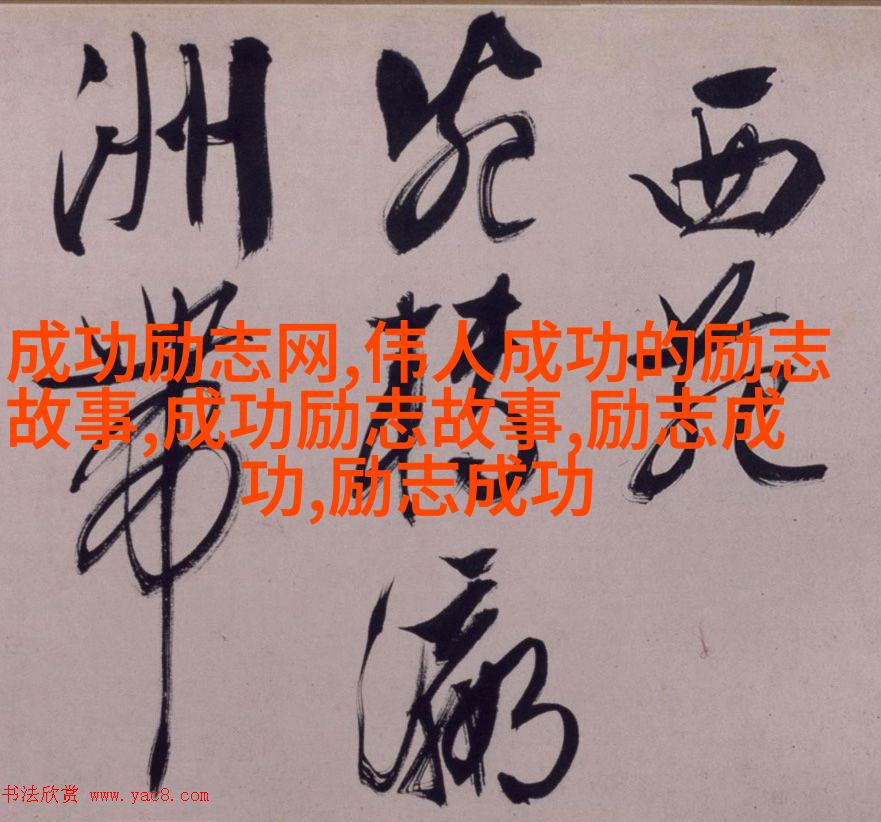 西苑
瀛
洲帶
成功励志网,伟人成功的励志
故事,成功励志故事,励志成
功,励志成功
书法欣赏 www.yac8.com